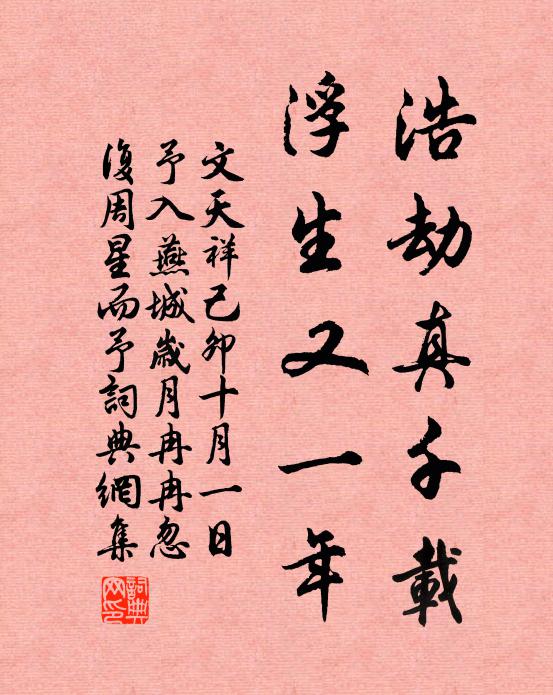 浩劫真千載
浮生又一年
文天祥己卯十月一日
予入燕城歲月冉冉忽
復周星而予詞典網集
詞典網印